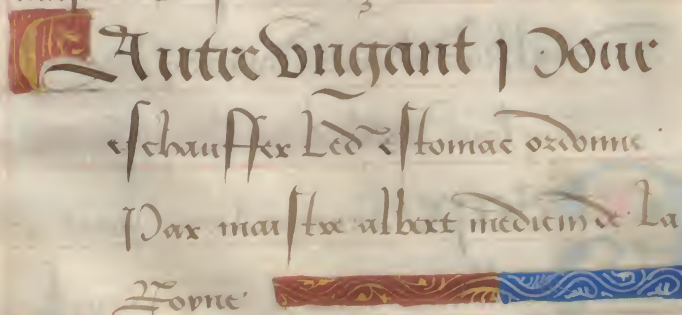 Autre Ungant pour
eschauffer Led estomac ordonne
Par maistre albert medicin de La
Royne